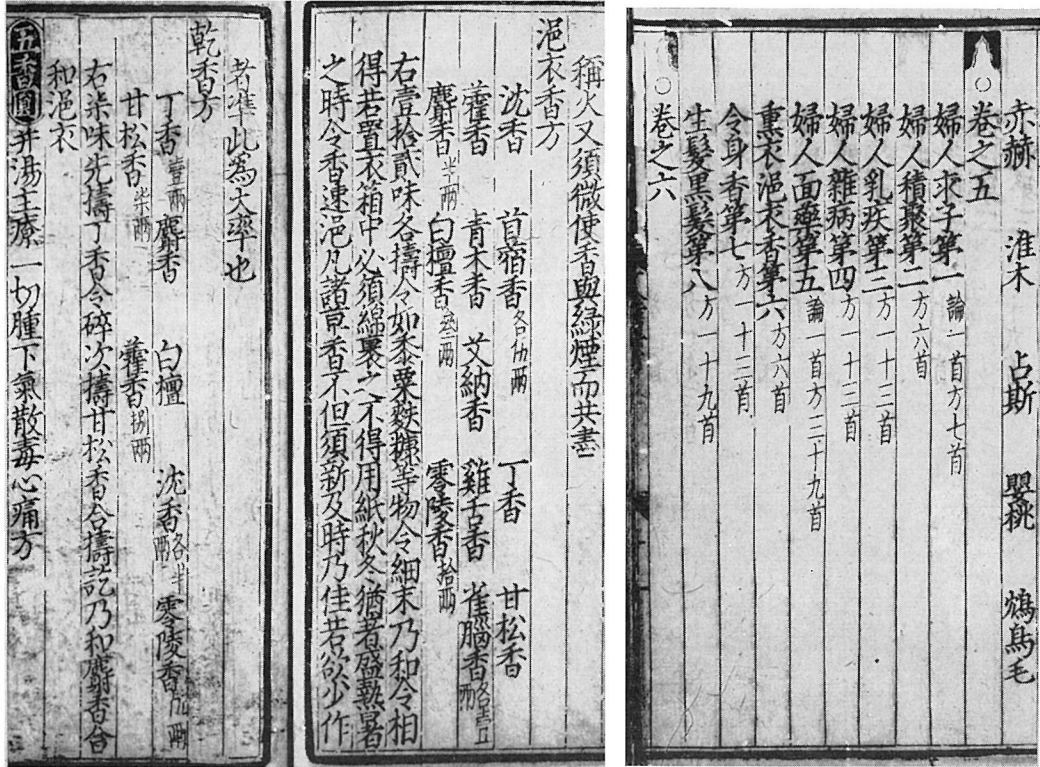 赤赫 淮木 占斯 嬰桃 鴆鳥毛
卷之五
婦人求子第一 論一首方七首
婦人積聚第二 方六首
婦人乳疾第三 方一十三首
婦人雜病第四 方一十三首
婦人面藥第五 論一首方三十九首
熏衣浥衣香第六 方六首
令身香第七 方一十三首
生髮黑髮第八 方一十九首
卷之六
稱火又須微使香與綠煙而共盡
浥衣香方
沈香 苜蓿香各伍兩 丁香 甘松香
藿香 青木香 艾納香 雞舌香 雀腦香各壹兩
麝香半兩 白檀香叁兩 零陵香拾兩
右壹拾貳味各擣令如黍粟麩糠等物令細末乃和令相
得若置衣箱中必須綿裹之不得用紙秋冬猶著盛熱暑
之時令香速浥凡諸草香不但須新及時乃佳若欲少作
者準此為大率也
乾香方
丁香壹兩 麝香 白檀 沈香各半兩 零陵香伍兩
甘松香柒兩 藿香捌兩
右柒味先擣丁香令碎次擣甘松香合擣訖乃和麝香合
和浥衣
五香圓并湯主療一切腫下氣散毒心痛方